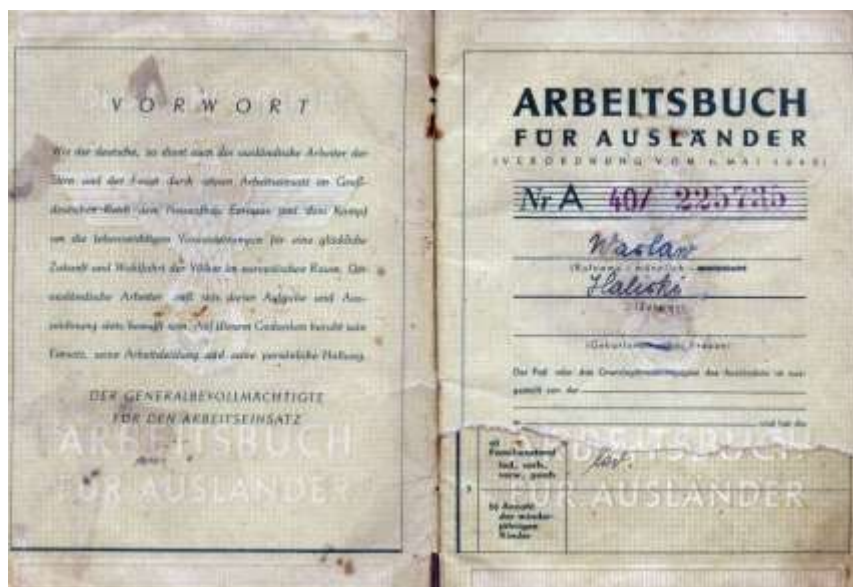 VORWORT
Wie der deutsche, so dient auch der ausländische Arbeiter der
Stirn und der Faust durch seinen Arbeitseinsatz im Groß-
deutschen Reich dem Neuaufbau Europas und dem Kampf
um die lebenswichtigen Voraussetzungen für eine glückliche
Zukunft und Wohlfahrt der Völker im europäischen Raum. Der
ausländische Arbeiter muß sich dieser Aufgabe und Aus-
zeichnung stets bewußt sein. Auf diesem Gedanken beruht sein
Einsatz, seine Arbeitsleistung und seine persönliche Haltung.
DER GENERALBEVOLLMÄCHTIGTE
FÜR DEN ARBEITSEINSATZ
ARBEITSBUCH
FÜR AUSLÄNDER
ARBEITSBUCH
FÜR AUSLÄNDER
(VERORDNUNG VOM 1. MAI 1943)
Nr A 40/ 225735
Waclaw
(Rufname - männlich -
Halicki
(Zuname)
(Geburtsname der Frauen)
Der Paß oder das
gestellt von der
und hat die
a) Familienstand
led., verh.,
verw., gesch.
led.
b) Anzahl
der minder-
jährigen
Kinder
ARBEITSBUCH
FÜR AUSLÄNDER